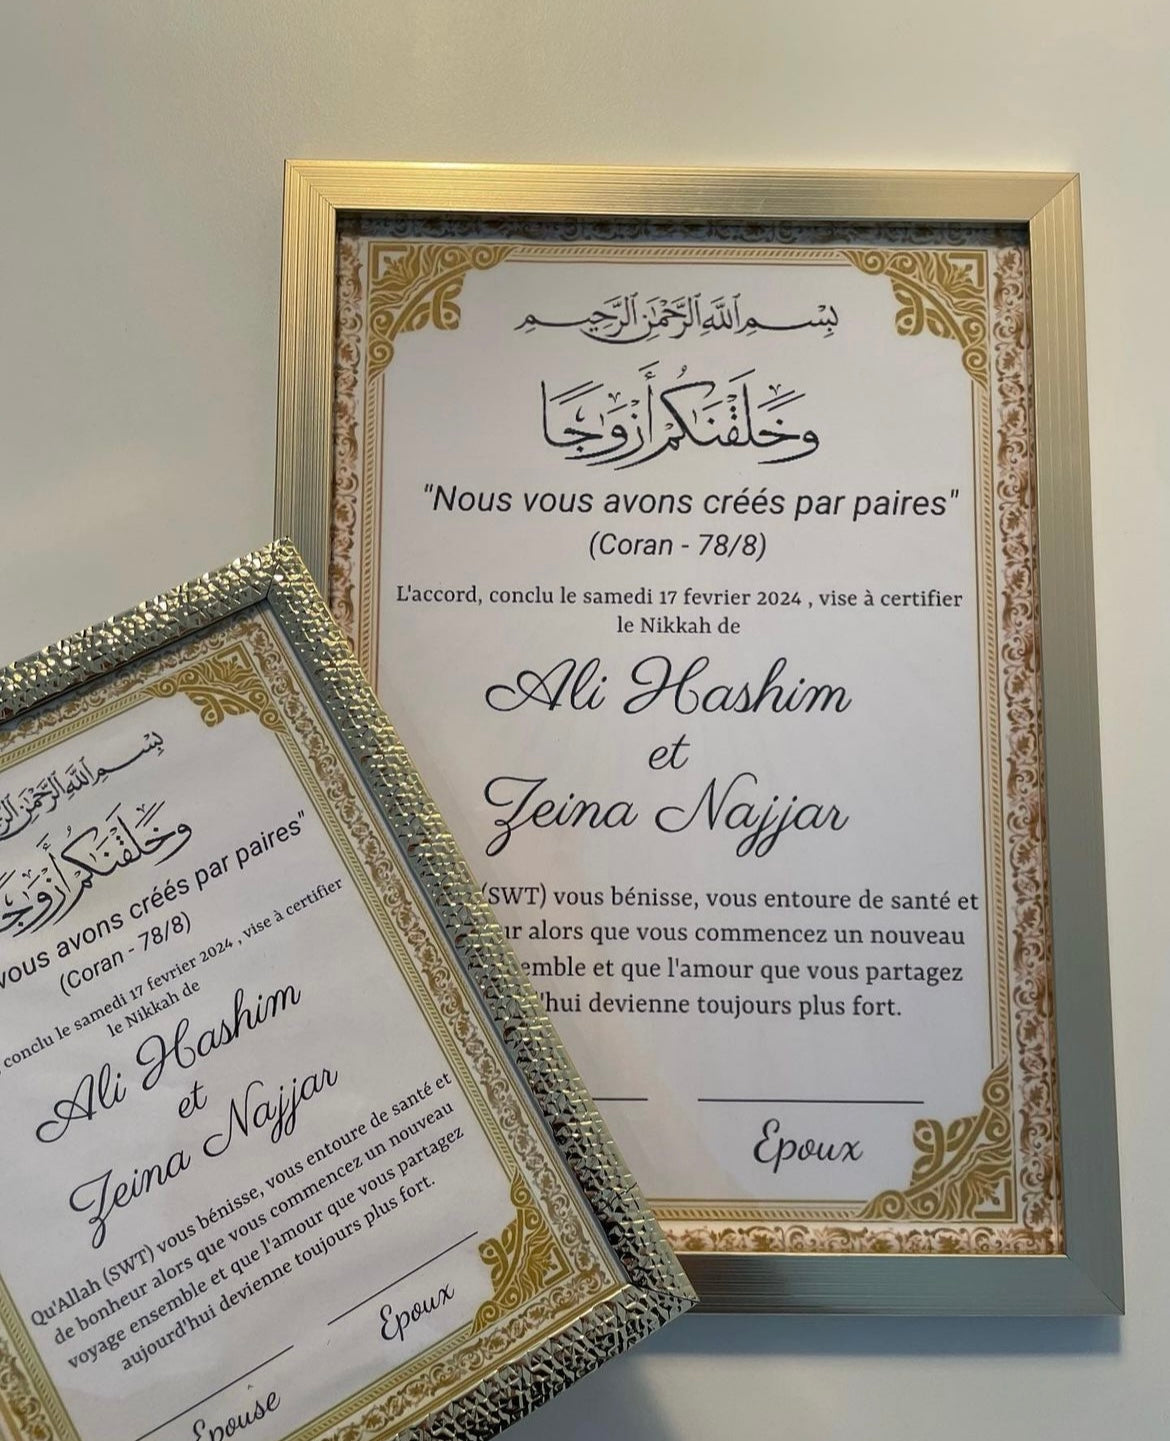 بِسْمِ اللَّهِ الرَّحْمَٰنِ الرَّحِيمِ
وَخَلَقْنَاكُمْ أَزْوَاجًا
"Nous vous avons créés par paires"
(Coran - 78/8)
L'accord, conclu le samedi 17 fevrier 2024 , vise à certifier
le Nikkah de
Ali Hashim
et
Zeina Najjar
(SWT) vous bénisse, vous entoure de santé et
alors que vous commencez un nouveau
et que l'amour que vous partagez
devienne toujours plus fort.
Epoux
بِسْمِ اللَّهِ الرَّحْمَٰنِ
وَخَلَقْنَاكُمْ أَزْوَاجًا
vous avons créés par paires"
(Coran - 78/8)
conclu le samedi 17 fevrier 2024 , vise à certifier
le Nikkah de
Ali Hashim
et
Zeina Najjar
Qu'Allah (SWT) vous bénisse, vous entoure de santé et
de bonheur alors que vous commencez un nouveau
voyage ensemble et que l'amour que vous partagez
aujourd'hui devienne toujours plus fort.
Epoux
Epouse